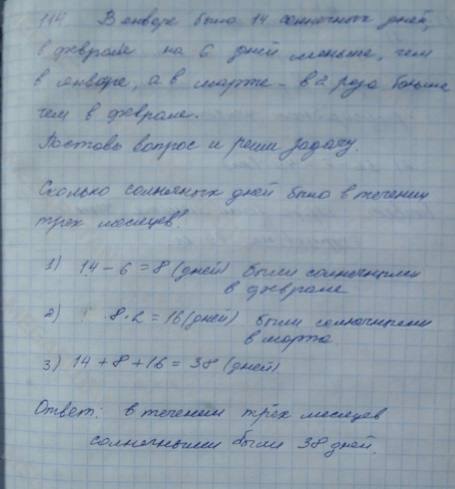 114 В январе было 14 солнечных дней,
в феврале на 6 дней меньше, чем
в январе, а в марте - в 2 раза больше
чем в феврале.
Поставь вопрос и реши задачу.
Сколько солнечных дней было в течении
трех месяцев?
1) 14 - 6 = 8 (дней) были солнечными
в феврале
2) 8 · 2 = 16 (дней) были солнечными
в марте
3) 14 + 8 + 16 = 38 (дней)
Ответ: в течении трёх месяцев
солнечными были 38 дней.